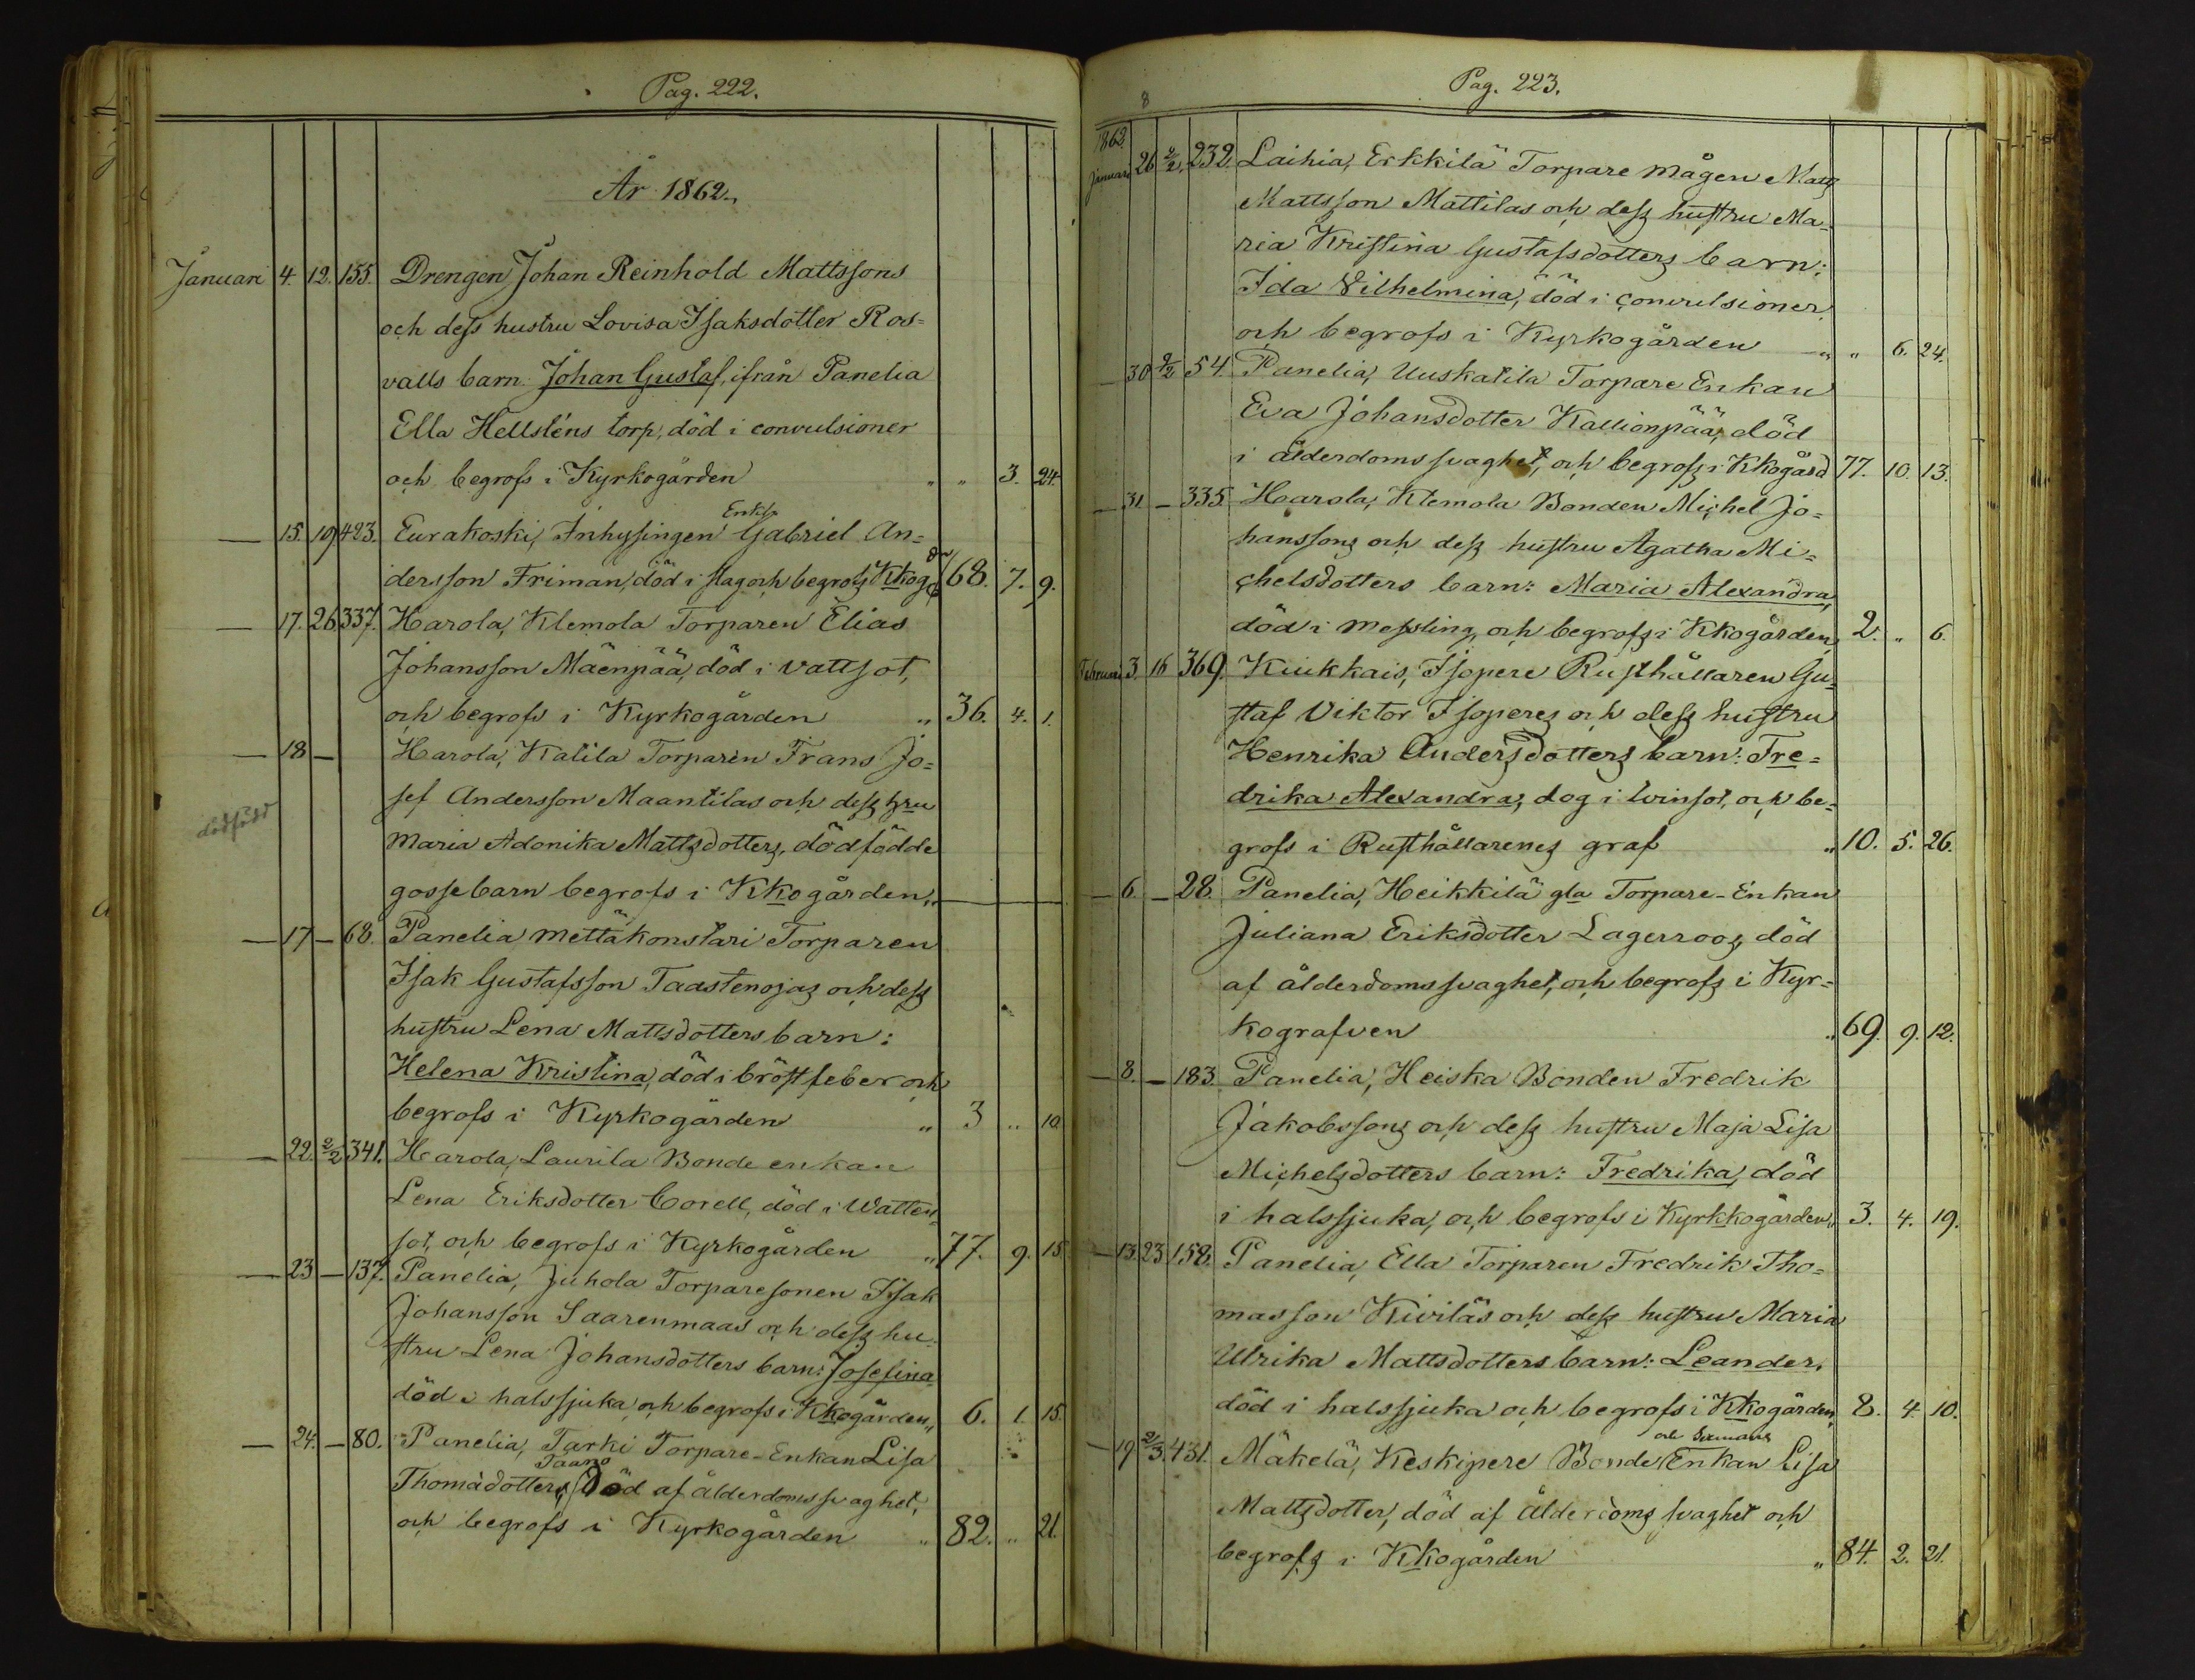 Pag. 222.
År 1862.
Januari 4. 12. 155. Drengen Johan Reinhold Mattssons
och dess hustru Lovisa Isaksdotter Ros=
valls barn Johan Gustaf, ifrån Panelia
Ella Hellsténs torp, död i convulsioner
och begrofs i Kyrkogården " " 3. 24.
Enkl
— 15. 19 423. Eurakoski, Inhysingen Gabriel An=
dersson Friman, död i slag och begrofs Kkogdn 68. 7. 9.
— 17. 26 337. Harola, Klemola Torparen Elias
Johansson Mäenpää, död i vattsot,
och begrofs i Kyrkogården " 36. 4. 1.
— 18 — Harola, Katila Torparen Frans Jo=
sef Andersson Maantilas och dess hru
dödfödd
Maria Adonika Mattsdotters, dödfödde
gossebarn begrofs i Kkogården "
— 17 — 68. Panelia Mettäkonstari Torparen
Isak Gustafsson Taastenojas och dess
hustru Lena Mattsdotters barn:
Helena Kristina, död i bröstfeber och
begrofs i Kyrkogården " 3 " 10.
— 22. 2/2 341. Harola, Laurila Bonde enkan
Lena Eriksdotter Corell, död i Watten
sot, och begrofs i Kyrkogården " 77. 9. 15
— 23 — 137. Panelia, Juhola Torparesonen Isak
Johansson Saarenmaas och dess hu=
stru Lena Johansdotters barn: Josefina
död i halssjuka och begrofs i Kkogården " 6. 1. 15.
— 24. — 80. Panelia, Tarki Torpare-Enkan Lisa
Taano
Thomàdotter, Död af ålderdomssvaghet,
och begrofs i Kyrkogården " 82. " 21.
Pag. 223.
8
1862.
Januari 26 2/2. 232. Laihia, Erkkilä Torpare mågen Matts
Mattsson Mattilas och dess hustru Ma=
ria Kristina Gustafsdotters barn:
Ida Vilhelmina, död i convulsioner
och begrofs i Kyrkogården " " 6. 24.
— 30 2/2 54. Panelia, Uuskatila Torpare Enkan
Eva Johansdotter Kallionpää, död
i ålderdomssvaghet, och begrofs i Kkogård 77. 10. 13.
— 31 — 335. Harola, Klemola Bonden Michel Jo=
hanssons och dess hustru Agatha Mi=
chelsdotters barn: Maria Alexandra,
död i messling, och begrofs i Kkogården, 2. " 6.
Februari 3. 16 369. Kiukkais, Isopere Rusthållaren Gu=
staf Viktor Isoperes och dess hustru
Henrika Andersdotters barn: Fre=
drika Alexandra, dog i tvinsot, och be=
grofs i Rusthållarenes graf " 10. 5. 26.
— 6. — 28. Panelia, Heikkilä gla Torpare-Enkan
Juliana Eriksdotter Lagerroos, död
af ålderdomssvaghet, och begrofs i Kyr=
kografven " 69. 9. 12.
— 8. — 183. Panelia, Heiska Bonden Fredrik
Jakobssons och dess hustru Maja Lisa
Michelsdotters barn: Fredrika, död
i halssjuka, och begrofs i Kyrkkogården " 3. 4. 19.
— 13. 23 158. Panelia, Ella Torparen Fredrik Tho=
masson Kiviläs och dess hustru Maria
Ulrika Mattsdotters barn: Leander,
död i halssjuka och begrofs i Kkogården, 8. 4. 10.
— 19 2/3. 431. Mäkelä, Keskipere Bonde Enkan Lisa
Mattsdotter, död af ålderdoms svaghet och
begrofs i Kkogården " 84. 2. 21.